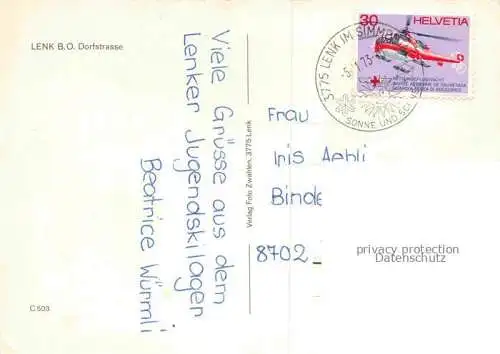 LENK B.O. Dorfstrasse
Viele Grüsse aus dem
Lenker Jugendskilager
Beatrice Würmli
C 503
Verlag Foto Zwahlen, 3775 Lenk
3775 LENK IM SIMMEN
-5. 1.73-
SONNE UND
30 HELVETIA
Frau
Iris Aebli
Binde
8702
privacy protection
Datenschutz